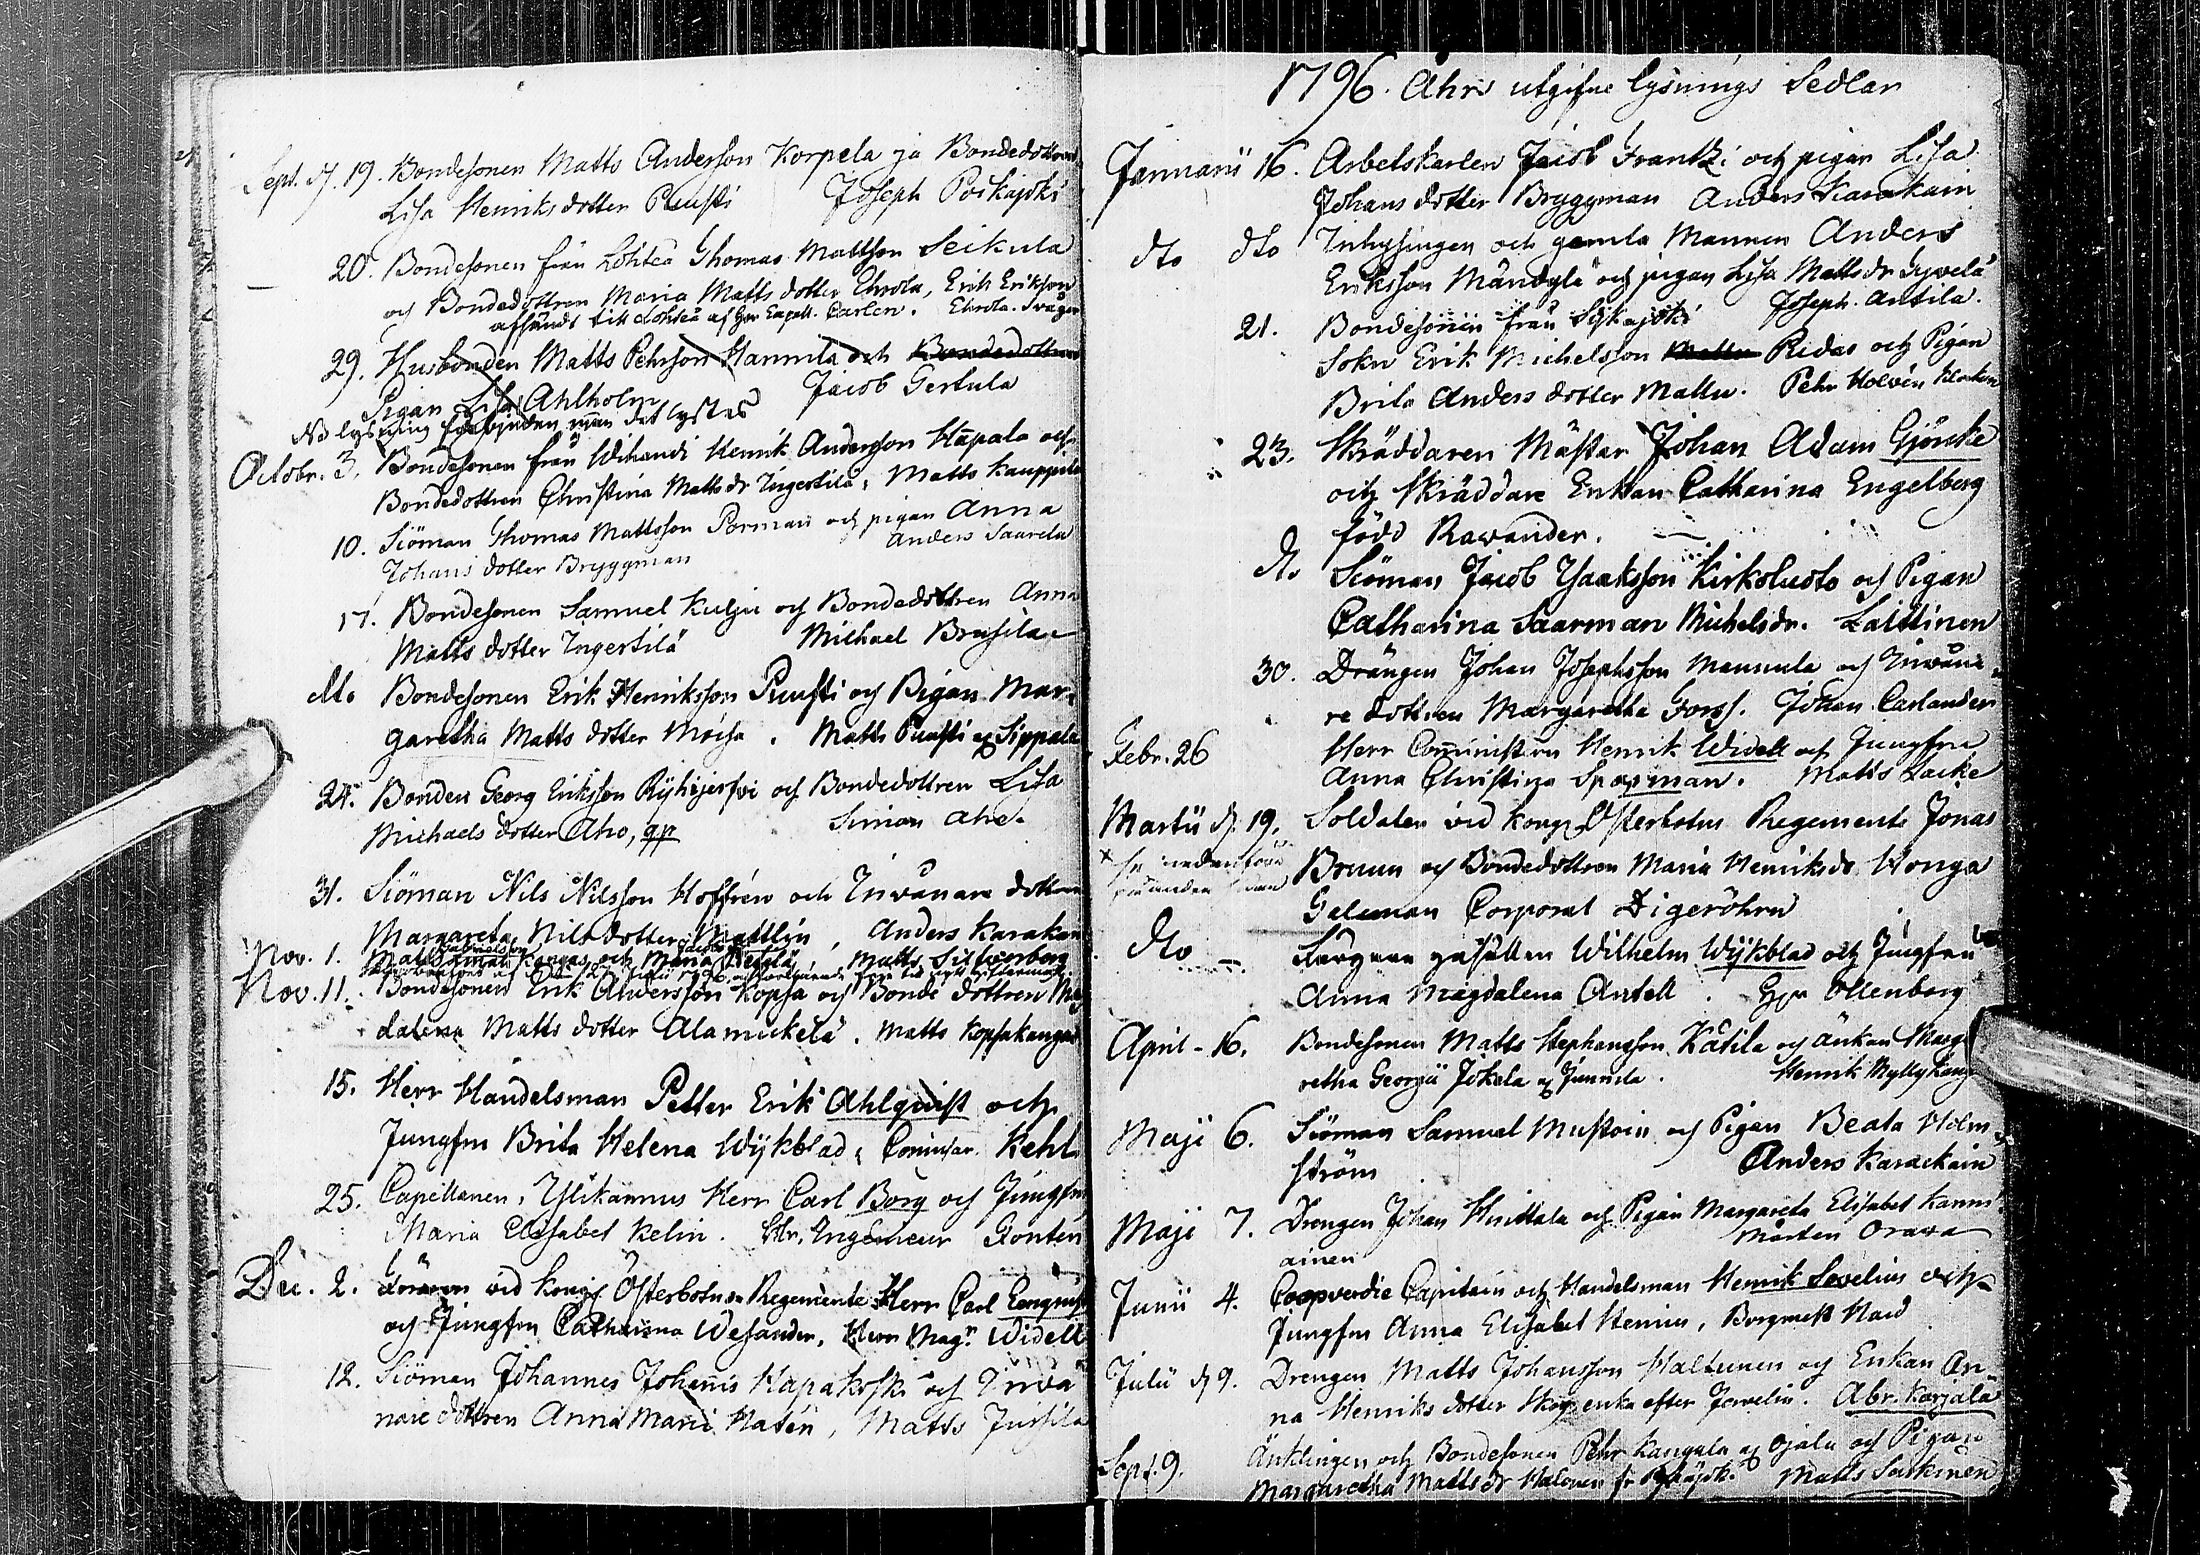 Sept. d. 19. Bondesonen Matts Andersson Korpela ja Bondedottren
Lisa Henriksdotter Puusti Joseph Poikajoki
20. Bondesonen från Lohteå Thomas Mattsson Seikula
och Bondedottren Maria Matts dotter Ehrola, Erik Eriksson
afsändt till Lohteå af Herr Capell. Carlen. Ehrola. Svåger
29. Husbonden Matts Pehrsson Hannila och Bondedottren
Pigan Lisa Ahlholm Jacob Gertula
No lysning förbjuden men det lystes
Octobr. 3. Bondesonen från Wihandi Henrik Andersson Hapala och
Bondedottren Christina Mattsdr Ingertilä, Matts Kauppila
10. Siöman Thomas Mattsson Porman och pigan Anna
Johans dotter Bryggman Anders Saarela
17. Bondesonen Samuel Kulju och Bondedottren Anna
Matts dotter Ingertilä Michael Brusila
dto Bondesonen Erik Henriksson Puusti och Pigan Mar-
garetha Matts dotter Moisa. Matts Puusti ex Sippala
24. Bonden Georg Eriksson Ryhijerfvi och Bondedottren Lisa
Michaels dotter Aho, qp Simon Aho.
31. Siöman Nils Nilsson Hoffrén och Inwånare dottren
Margareta Nils dotter Mattlin, Anders Karakain
Nov. 1. Matts Kangas och Maria Matts Silfwerberg
Nov. 11. Bondesonen Erik Andersson Kopsa och Bonde dottren Mag
dalena Matts dotter Alamickelä. Matts Kopsakangas
15. Herr Handelsman Petter Erik Ahlqvist och
Jungfru Brita Helena Wijkblad, Commissar. Kehl
25. Capellanen i Ylikannus Herr Carl Borg och Jungfru
Maria Elisabet Kelin. Hr. Ingenieur Gonten
Dec. 2. Föraren vid Kongl Österbotns Regemente Herr Carl Enngvist
och Jungfru Catharina Wesander, Herr Magr. Widell
12. Siöman Johannes Johanis Hapakoski och Inwå
nare dottren Anna Maria Natén, Matts Jussila
1796. Åhrs utgifne lysnings Sedlar
Januarii 16. Arbetskarlen Jacob Frantzi och pigan Lisa
Johans dotter Bryggman Anders Karakain
dto dto Inhysingen och gamla Mannen Anders
Eriksson Mändylä och pigan Lisa Mattsdr Sypelä
Joseph. Antila.
21. Bondesonen från Sijkajoki
Sokn Erik Michelsson Mattu Ridas och Pigan
Brita Anders dotter Mattu. Pehr Holvén Klocken
23. Skräddaren Mästar Johan Adam Gjönske
och Skräddare Enkan Catharina Engelberg
född Rawander.
dto Siöman Jacob Ysaaksson Kirkoluoto och Pigan
Catharina Saarman Michelsdr. Laittinen
30. Drängen Johan Josephsson Mannila och Inwåna-
re dottren Margaretha Forss. Johan Carlander
Febr. 26 Herr Comministern Henrik Widell och Jungfru
Anna Christina Sparman. Matts Lacke
Martii d. 19. Soldaten vid Kongl Österbotns Regemente Jonas
Bruun och Bondedottren Maria Henriksdr Honga
Galaman Corporal Digeröhrn
dto Färgare gesällen Wilhelm Wijkblad och Jungfru
Anna Magdalena Antell. Hr Ollenborg
April 16. Bondesonen Matts Stephansson Katila och änkan Marga
retha Georgii Jokela ex Junnila. Henrik Myllykang
Maji 6. Siöman Samuel Mustoin och Pigan Beata Holm
ström Anders Karackain
Maji 7. Drengen Johan Hirittala och Pigan Margareta Elisabet Kanni
ainen Mårten Orawa
Junii 4. Coopverdie Capitain och Handelsman Henrik Sovelius och
Jungfru Anna Elisabet Stenius, Borgmest Haid
Julii d 9. Drengen Matts Johansson Haltunen och Enkan An-
na Henriks dotter Skepp enka efter Jowelin. Abr. Karjala
Sept. 9. Änklingen och Bondesonen Pehr Kangala ex Ojala och Pigan
Margaretha Mattsdr Halonen fr Pyhäjoki Matts Saikinen